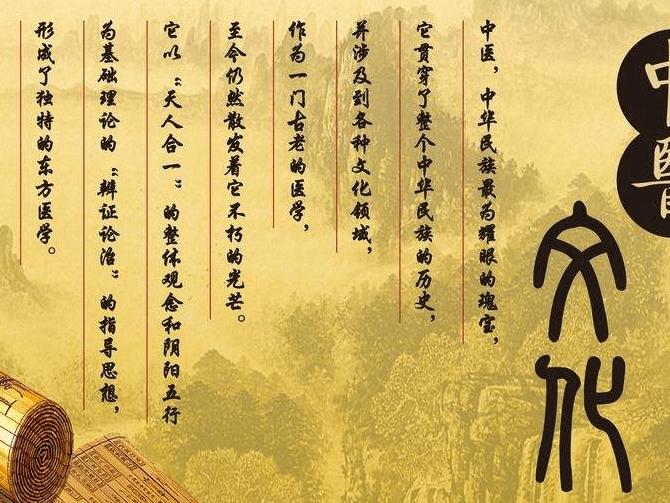 中醫
文化
中医，中华民族最为耀眼的瑰宝，
它贯穿了整个中华民族的历史，
并涉及到各种文化领域，
作为一门古老的医学，
至今仍然散发着它不朽的光芒。
它以“天人合一”的整体观念和阴阳五行
为基础理论的“辨证论治”的指导思想，
形成了独特的东方医学。